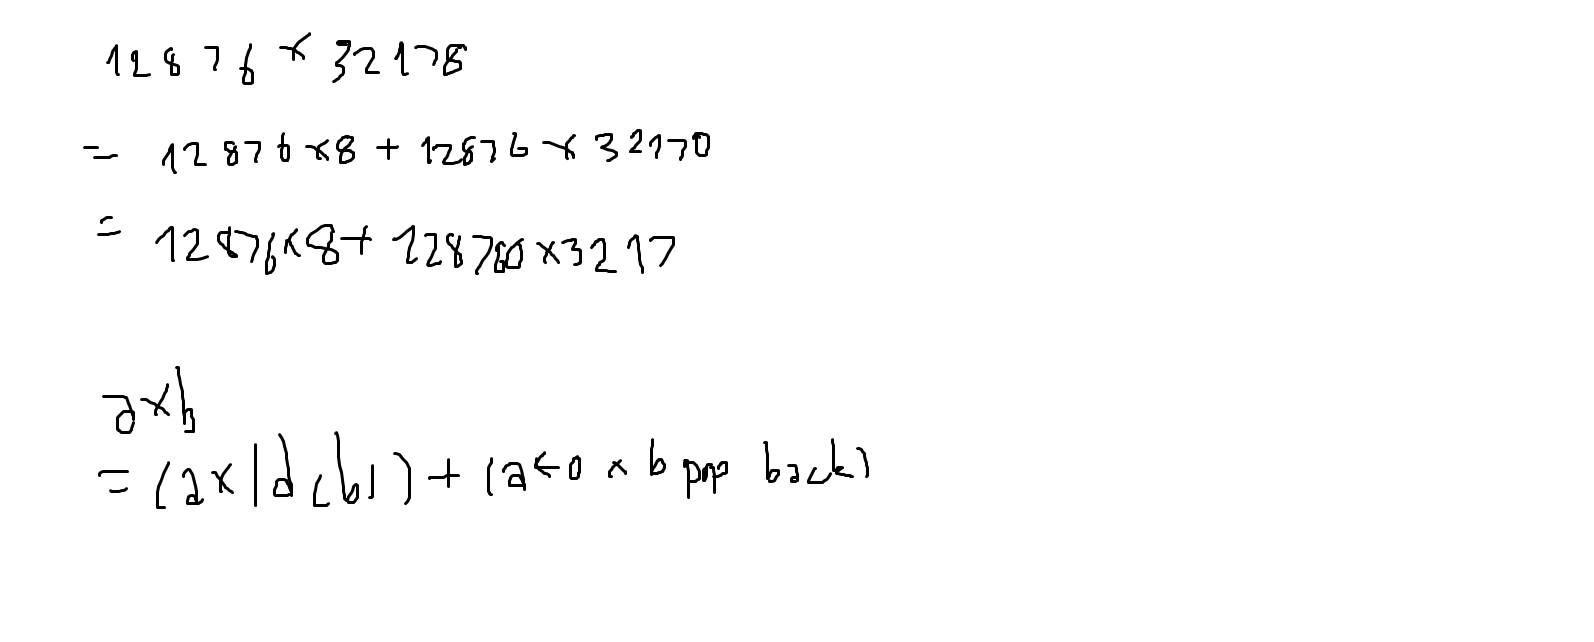 12876 × 32178
= 12876×8 + 12876 × 32170
= 12876×8+ 128760×3217
a×b
= (a×ld(b)) + (a←0 × b pop back)